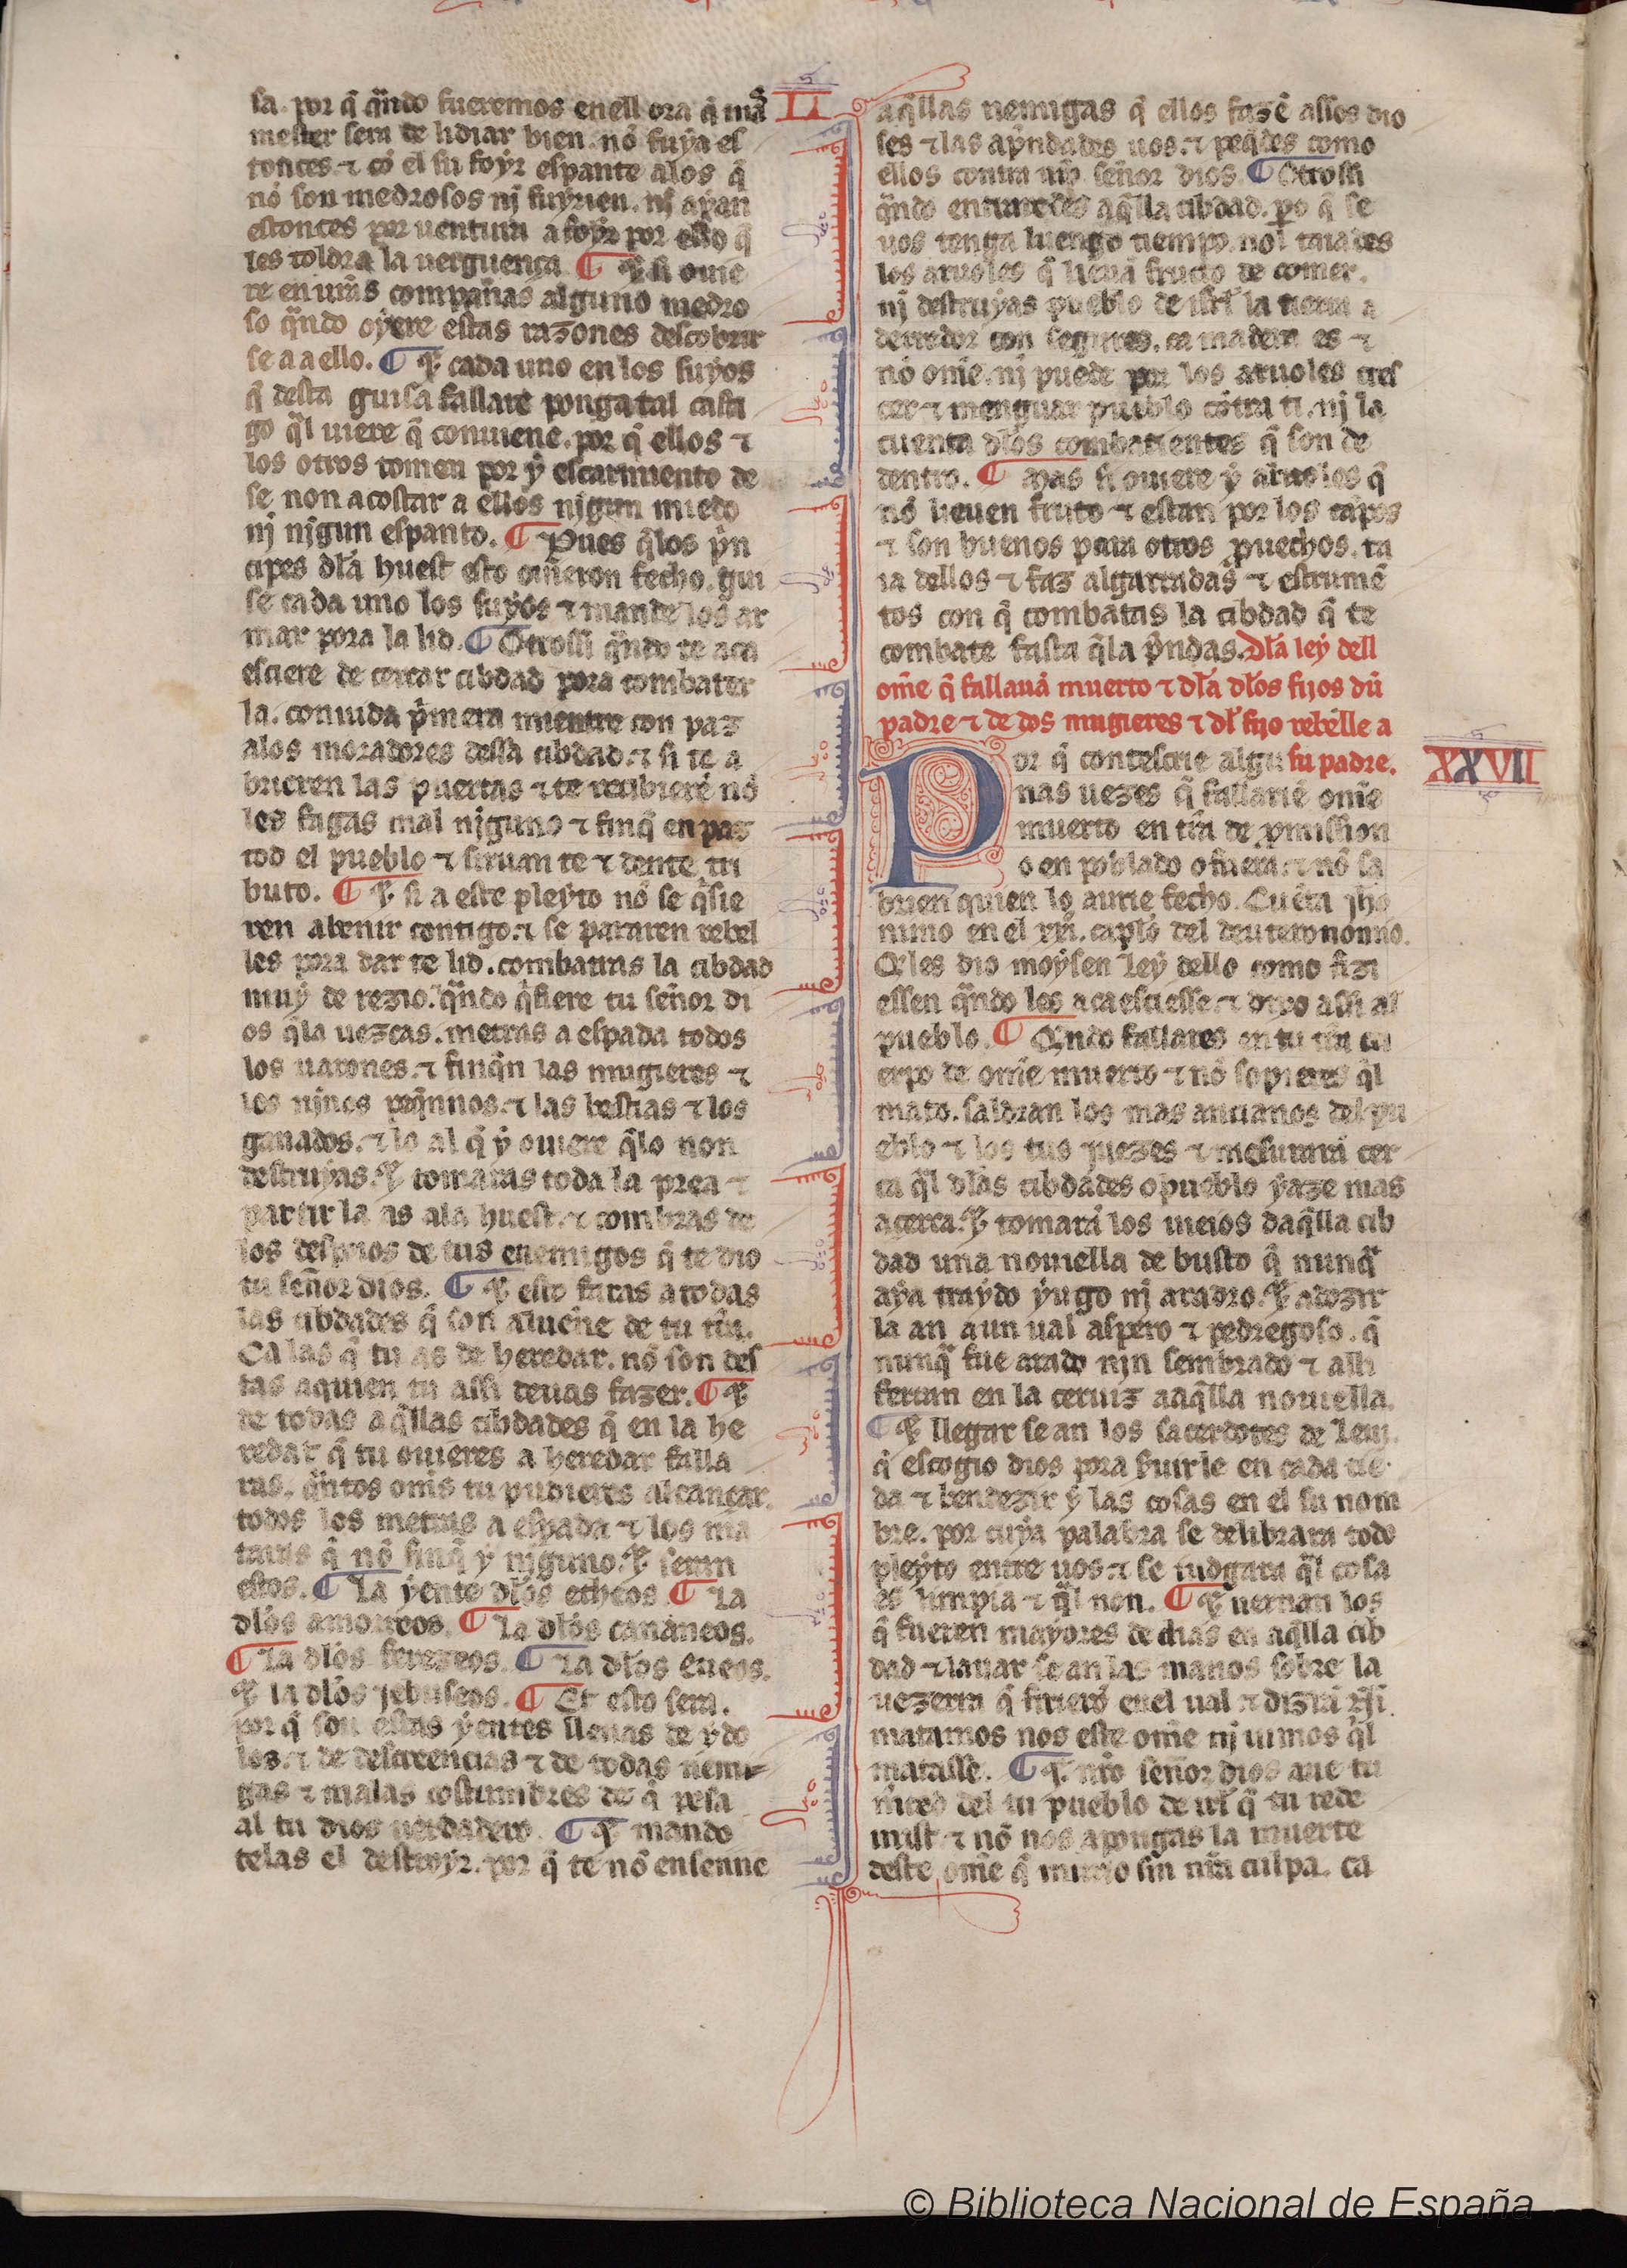 sa. por q̃ q̃ndo fueremos enell ora q̃ mas
mester sera de lidiar bien. nõ fuya es
tonces. ⁊ cõ el su foyr espante alos q̃
nõ son medrosos nj fuyrien. nj ayan
estonces por uentura a foyr por ello q̃
les toldra la uerguença ¶ ⁊ si ouie
re en ur̃as compañas alguno medro
so q̃ndo oyere estas razones descobrir
se a a ello. ¶ ⁊ cada uno en los suyos
q̃ desta guisa fallare ponga tal casti
go q̃l uiere q̃ conuiene. por q̃ ellos ⁊
los otros tomen por y escarmiento de
se non acostar a ellos nj̃gun miedo
nj nj̃gun espanto. ¶ Pues q̃los prin
cipes dla huest esto ouieron fecho. gui
se cada uno los suyos ⁊ mande los ar
mar pora la lid. ¶ Otrossi q̃ndo te aca
esciere de cercar cibdad pora combater
la. conuida p̃mera mientre con paz
alos moradores dessa cibdad. ⁊ si te a
brieren las puertas ⁊ te recibierẽ nõ
les fagas mal nj̃guno ⁊ finq̃ en paz
tod el pueblo ⁊ siruan te ⁊ dente tri
buto. ¶ ⁊ si a este pleyto nõ se q̃sie
ren abenir contigo. ⁊ se pararen rebel
les pora dar te lid. combatras la cibdad
muy de rezio. q̃ndo q̃siere tu señor di
os q̃la uezcas. metras a espada todos
los uarones. ⁊ finq̃n las mugieres ⁊
los nj̃nos peq̃nnos. ⁊ las bestias ⁊ los
ganados. ⁊ lo al q̃ y ouiere q̃lo non
destruyas. ⁊ tomaras toda la prea ⁊
partir la as ala huest. ⁊ combras de
los despoios de tus enemigos q̃ te dio
tu señor dios. ¶ ⁊ esto faras a todas
las cibdades q̃ son alueñe de tu tr̃ra.
Ca las q̃ tu as de heredar. nõ son des
tas aquien tu assi deuas fazer. ¶ ⁊
de todas aq̃llas cibdades q̃ en la he
redat q̃ tu ouieres a heredar falla
ras. q̃ntos om̃s tu pudieres alcançar.
todos los metras a espada ⁊ los ma
taras q̃ nõ finq̃ y nj̃guno. ⁊ seran
estos. ¶ La yente dlos etheos. ¶ La
dlos amorreos. ¶ La dlos cananeos.
¶ La dlos ferezeos. ¶ La dlos Eueos.
⁊ la dlos jebuseos. ¶ Et esto sera.
por q̃ son estas yentes llenas de ydo
los. ⁊ de descreencias ⁊ de todas nemi
gas ⁊ malas costumbres de q̃ pesa
al tu dios uerdadero. ¶ ⁊ mando
telas el destroyr. por q̃ te nõ ensenne
LI
aq̃llas nemigas q̃ ellos fazẽ assos dio
ses ⁊ las aprẽndades uos. ⁊ peq̃des como
ellos contra nr̃o señor dios. ¶ Otrossi
q̃ndo entraredes aq̃lla cibdad. pero q̃ se
uos tenga luengo tiempo. nol taiades
los aruoles q̃ lieuã fructo de comer.
nj destruyas pueblo de isrl la tierra a
derredor con segures. ca madera es ⁊
nõ om̃e. nj puede por los aruoles cres
cer ⁊ menguar pueblo cõtra ti. nj la
cuenta dlos combatientes q̃ son de
dentro. ¶ Mas si ouiere y aruoles q̃
nõ lieuen fruto ⁊ estan por los cãpos
⁊ son buenos para otros prouechos. ta
ia dellos ⁊ faz algarradas ⁊ estrumẽ
tos con q̃ combatas la cibdad q̃ te
combate fasta q̃la prẽndas. Dla ley dell
om̃e q̃ fallauã muerto ⁊ dla dlos fijos dũ
padre ⁊ de dos mugieres ⁊ dl fijo rebelle a
su padre.
XXVII
Por q̃ contesçrie algu
nas uezes q̃ fallariẽ om̃e
muerto en tr̃ra de promission
o en poblado o fuera. ⁊ nõ sa
brien quien lo aurie fecho. Cuẽta jho
nimo en el xxi. caplo del deuteronomio.
Q̃les dio moysen Ley dello como fizi
essen q̃ndo los acaesciesse. ⁊ dixo assi al
pueblo. ¶ Q̃ndo fallares en tu tr̃ra cu
erpo de om̃e muerto ⁊ nõ sopieres q̃l
mato. saldran los mas ancianos del pu
eblo ⁊ los tus juezes ⁊ mesurarã cer
ca q̃l dlas cibdades o pueblo yaze mas
acerca. ⁊ tomarã los uieios daq̃lla cib
dad una nouiella de busto q̃ nunq̃
aya traydo yugo nj aradro. ⁊ adozir
la an a un ual aspero ⁊ pedregoso. q̃
nunq̃ fue arado njn sembrado ⁊ alli
ferran en la ceruiz aaq̃lla nouiella.
¶ ⁊ llegar se an los sacerdotes de Leuj.
q̃ escogio dios pora seruirle en cada tie
da ⁊ bendezir y las cosas en el su nom
bre. por cuya palabra se delibrara todo
pleyto entre uos. ⁊ se iudgara q̃l cosa
es limpia ⁊ q̃l non. ¶ ⁊ uernan los
q̃ fueren mayores de dias en aq̃lla cib
dad ⁊ lauar se an las manos sobre la
uezerra q̃ firierõ enel ual ⁊ dizrã assi.
matamos nos este om̃e nj uimos q̃l
matasse. ¶ ⁊ nr̃o señor dios aue tu
m̃ced del tu pueblo de irl q̃ tu rede
mist. ⁊ nõ nos apongas la muerte
deste om̃e q̃ murio sin nr̃a culpa. ca
© Biblioteca Nacional de España